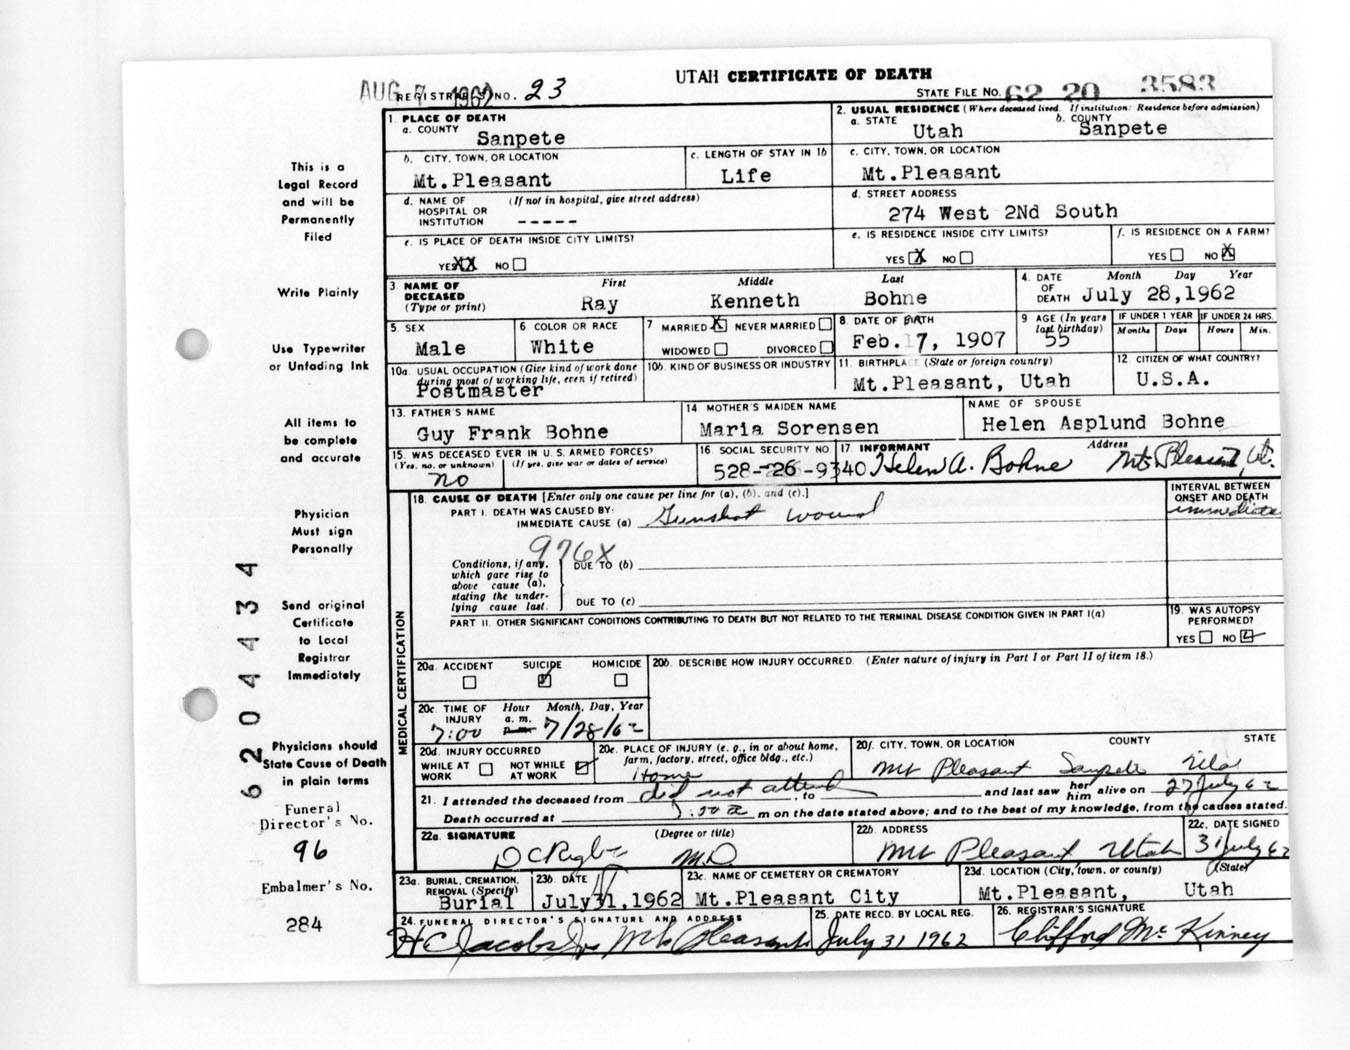 UTAH CERTIFICATE OF DEATH
AUG 7 1962
REGISTRAR'S NO. 23
STATE FILE NO. 62 20 3583
1. PLACE OF DEATH
a. COUNTY Sanpete
2. USUAL RESIDENCE (Where deceased lived. If institution: Residence before admission)
a. STATE Utah b. COUNTY Sanpete
b. CITY, TOWN, OR LOCATION Mt.Pleasant
c. LENGTH OF STAY IN 1b Life
c. CITY, TOWN, OR LOCATION Mt.Pleasant
d. NAME OF HOSPITAL OR INSTITUTION (If not in hospital, give street address) -----
d. STREET ADDRESS 274 West 2Nd South
e. IS PLACE OF DEATH INSIDE CITY LIMITS? YES XX NO
e. IS RESIDENCE INSIDE CITY LIMITS? YES X NO
f. IS RESIDENCE ON A FARM? YES NO X
3 NAME OF DECEASED (Type or print) First Ray Middle Kenneth Last Bohne
4. DATE OF DEATH Month Day Year July 28,1962
5. SEX Male
6 COLOR OR RACE White
7 MARRIED X NEVER MARRIED WIDOWED DIVORCED
8. DATE OF BIRTH Feb. 17, 1907
9 AGE (In years last birthday) 55
IF UNDER 1 YEAR Months Days
IF UNDER 24 HRS. Hours Min.
10a. USUAL OCCUPATION (Give kind of work done during most of working life, even if retired) Postmaster
10b. KIND OF BUSINESS OR INDUSTRY
11. BIRTHPLACE (State or foreign country) Mt.Pleasant, Utah
12. CITIZEN OF WHAT COUNTRY? U.S.A.
13. FATHER'S NAME Guy Frank Bohne
14 MOTHER'S MAIDEN NAME Maria Sorensen
NAME OF SPOUSE Helen Asplund Bohne
15. WAS DECEASED EVER IN U.S. ARMED FORCES? (Yes, no, or unknown) (If yes, give war or dates of service) no
16 SOCIAL SECURITY NO. 528-26-9340
17. INFORMANT Helen A. Bohne Address Mt. Pleasant, Ut.
18. CAUSE OF DEATH [Enter only one cause per line for (a), (b), and (c).]
PART I. DEATH WAS CAUSED BY:
IMMEDIATE CAUSE (a) Gunshot wound
INTERVAL BETWEEN ONSET AND DEATH immediate
976X
Conditions, if any, which gave rise to above cause (a), stating the underlying cause last.
DUE TO (b)
DUE TO (c)
PART II. OTHER SIGNIFICANT CONDITIONS CONTRIBUTING TO DEATH BUT NOT RELATED TO THE TERMINAL DISEASE CONDITION GIVEN IN PART I(a)
19. WAS AUTOPSY PERFORMED? YES NO
20a. ACCIDENT SUICIDE HOMICIDE
20b. DESCRIBE HOW INJURY OCCURRED. (Enter nature of injury in Part I or Part II of item 18.)
20c. TIME OF INJURY Hour a. m. p. m. Month, Day, Year
7:00 7/28/62
20d. INJURY OCCURRED WHILE AT WORK NOT WHILE AT WORK
20e. PLACE OF INJURY (e. g., in or about home, farm, factory, street, office bldg., etc.) Home
20f. CITY, TOWN, OR LOCATION COUNTY STATE
Mt Pleasant Sanpete Utah
21. I attended the deceased from did not attend, to and last saw her him alive on 27 July 62
Death occurred at 7:00 a m on the date stated above; and to the best of my knowledge, from the causes stated.
22a. SIGNATURE (Degree or title) D C Rigby M.D.
22b. ADDRESS Mt Pleasant, Utah
22c. DATE SIGNED 31 July 62
23a. BURIAL, CREMATION, REMOVAL (Specify) Burial
23b. DATE July 31,1962
23c. NAME OF CEMETERY OR CREMATORY Mt.Pleasant City
23d. LOCATION (City, town, or county) (State) Mt.Pleasant, Utah
24. FUNERAL DIRECTOR'S SIGNATURE AND ADDRESS H C Jacobs Mt. Pleasant
25. DATE RECD. BY LOCAL REG. July 31 1962
26. REGISTRAR'S SIGNATURE Clifford Mc Kinney
MEDICAL CERTIFICATION
This is a
Legal Record
and will be
Permanently
Filed
Write Plainly
Use Typewriter
or Unfading Ink
All items to
be complete
and accurate
Physician
Must sign
Personally
Send original
Certificate
to Local
Registrar
Immediately
Physicians should
State Cause of Death
in plain terms
Funeral
Director's No.
96
Embalmer's No.
284
6204434